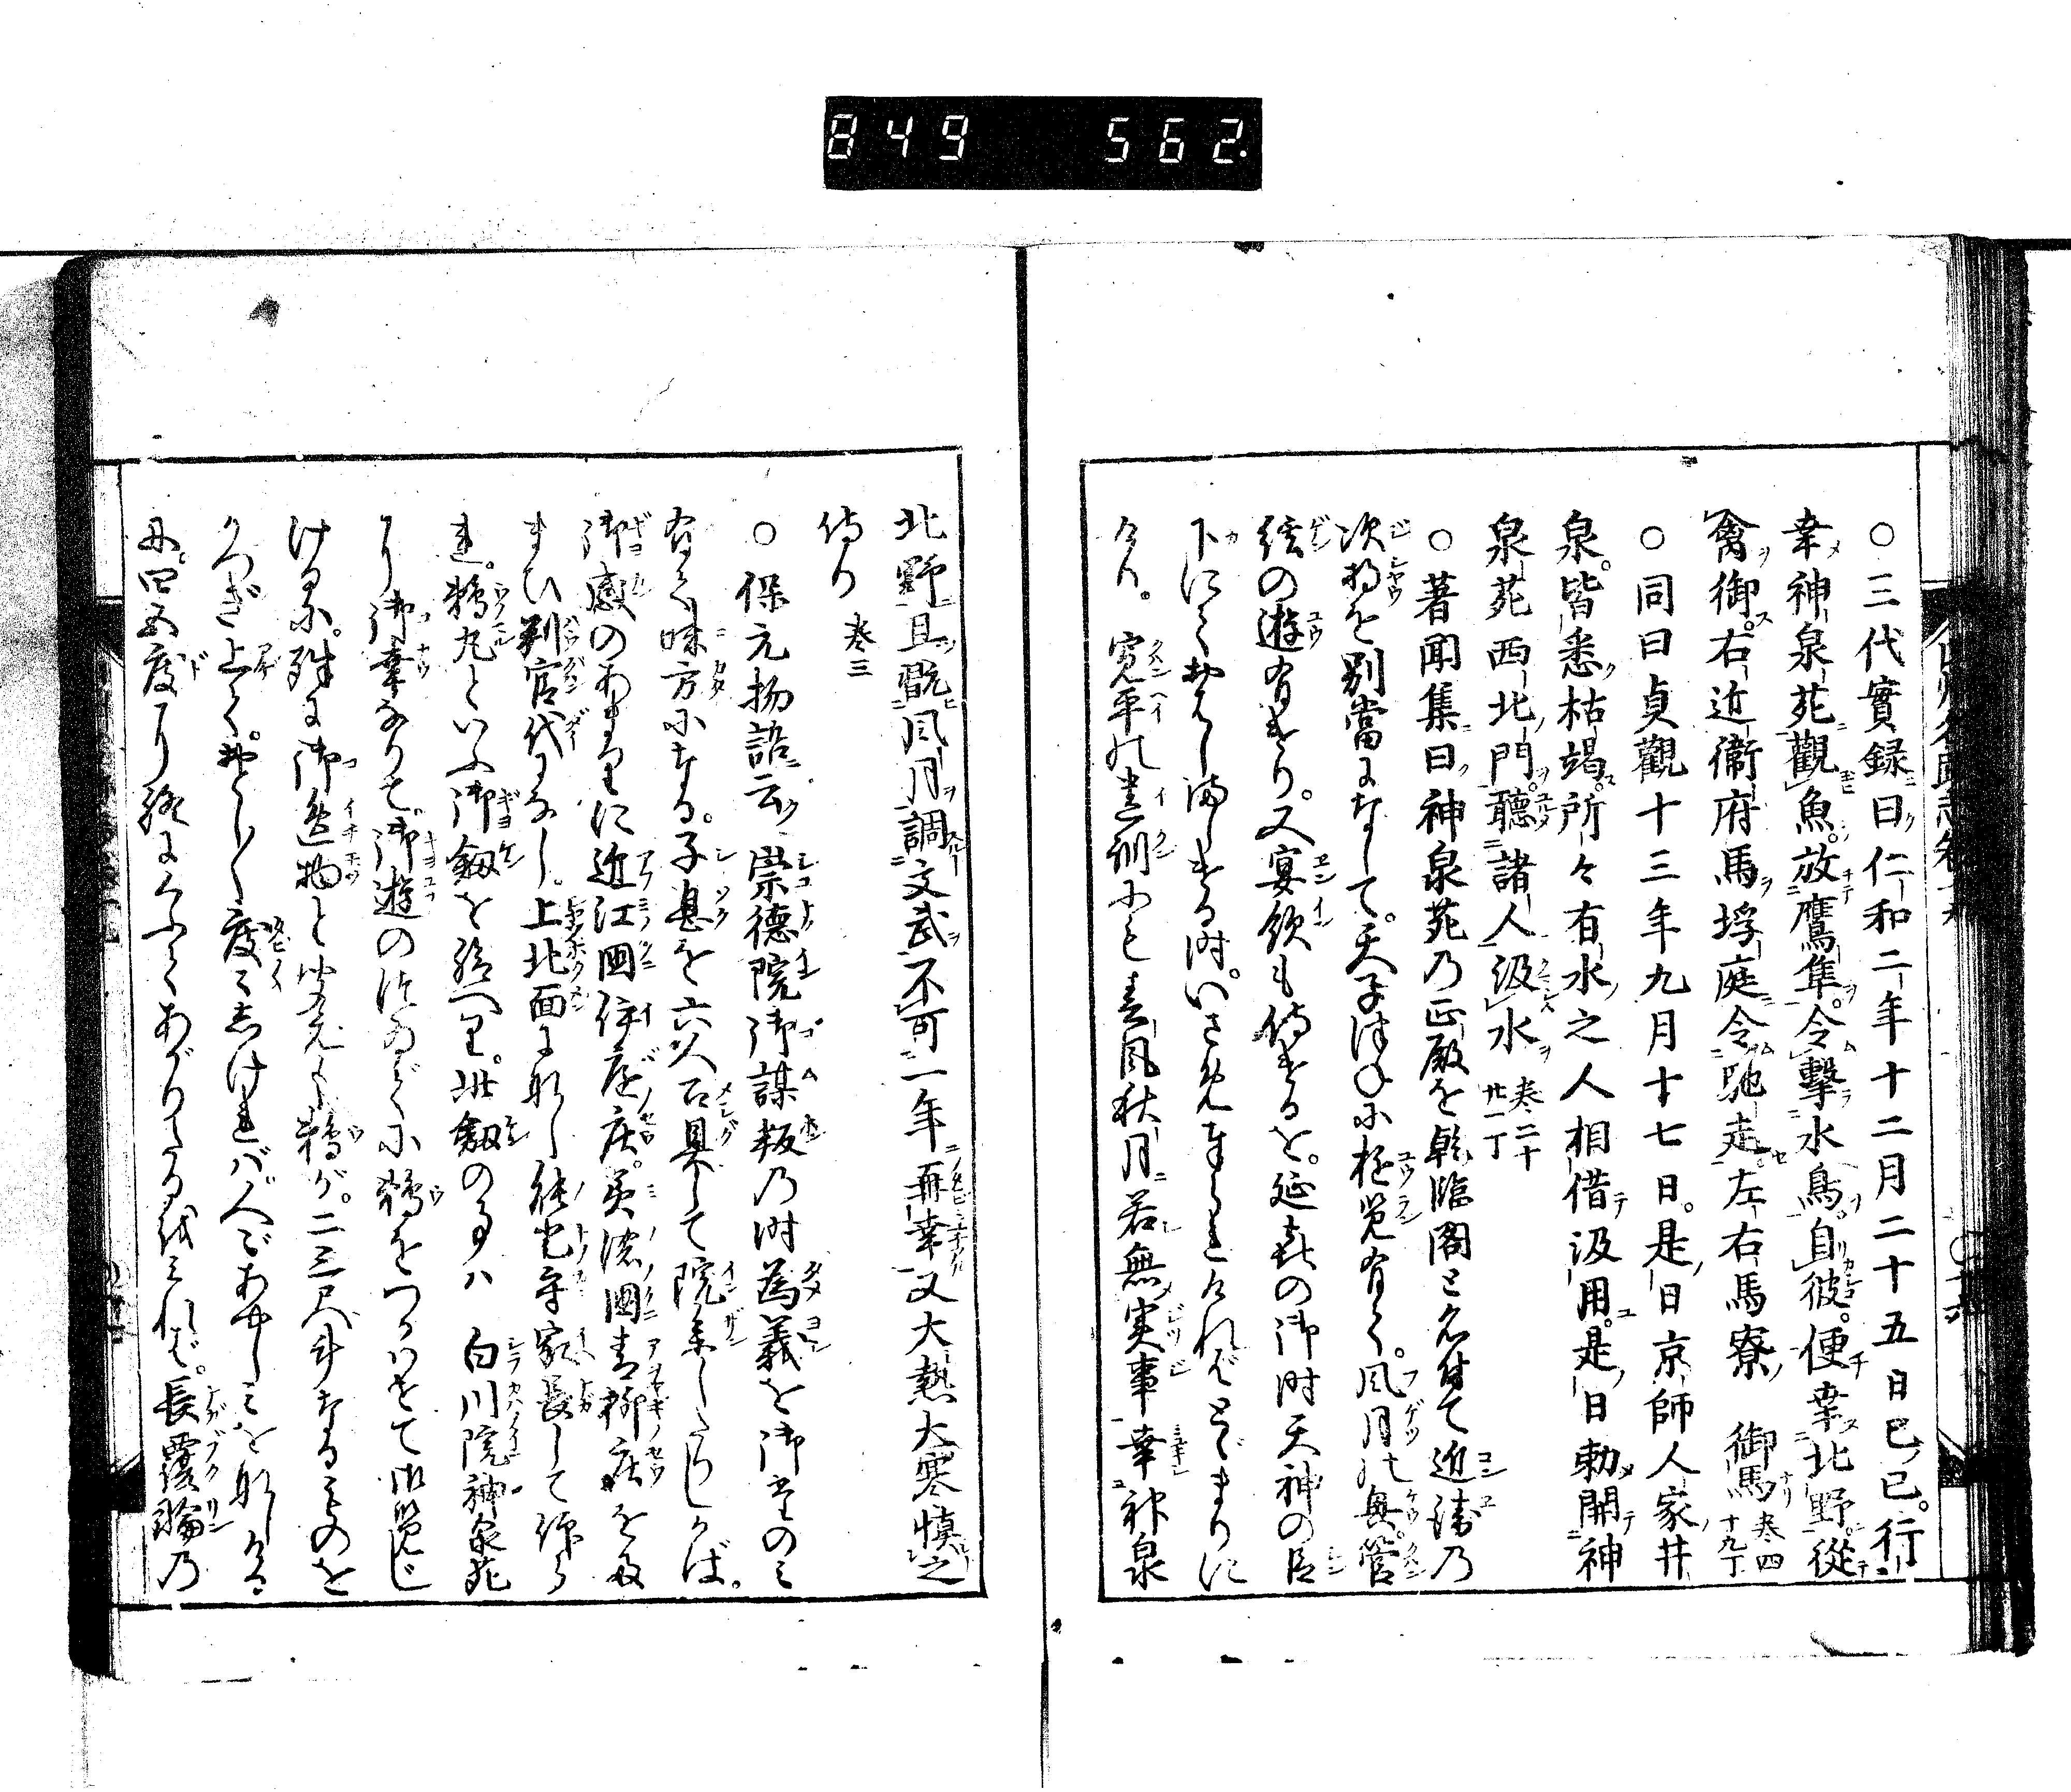 849 562.
○三代實録曰仁和二年十二月二十五日己巳。行
幸神泉苑觀魚。放鷹隼。令擊水鳥。自彼。便幸北野。從
禽御。右近衛府馬埒庭令馳走左右馬寮御馬 巻四十九丁
○同曰貞觀十三年九月十七日。是日京師人家井
泉。皆悉枯竭。所々有水之人相借汲用。是日勅開神
泉苑西北門。聽諸人汲水 巻二十廿一丁
○著聞集曰神泉苑乃正殿を乾臨閣と名付て近衛乃
次将を別當になして。天子つねに遊覧有て。風月の興。管
絃の遊有けり。又宴飲も侍けるを。延喜の御時天神の臣
下にておはしましける時。いさめ奉られけれどとゞまりに
けり。寛平の遺訓にも春風秋月若無実事幸神泉
北野且翫風月調文武不可一年再幸又大熱大寒慎之
侍り 巻三
○保元物語云崇德院御謀叛乃時為義を御たのミ
有て味方になる。子息を六人召具して院参したりしかば。
御感のあまりに近江國伊庭庄。美濃國青柳庄を
まひ判官代になし。上北面に能登守家長して
鵜丸といふ御劔を給へり。此劔の事ハ 白川院神泉苑
に御幸なりて。御遊の次のつゐでに鵜をつかハせて御覧じ
けるに。殊に御逸物と聞えし鵜が。二三尺ばかりなるものを
かつぎ上て。おとし〳〵度々しければ人々あやしミをなしける
に。四五度に終にくふてあがりたるをミれば。長覆輪乃